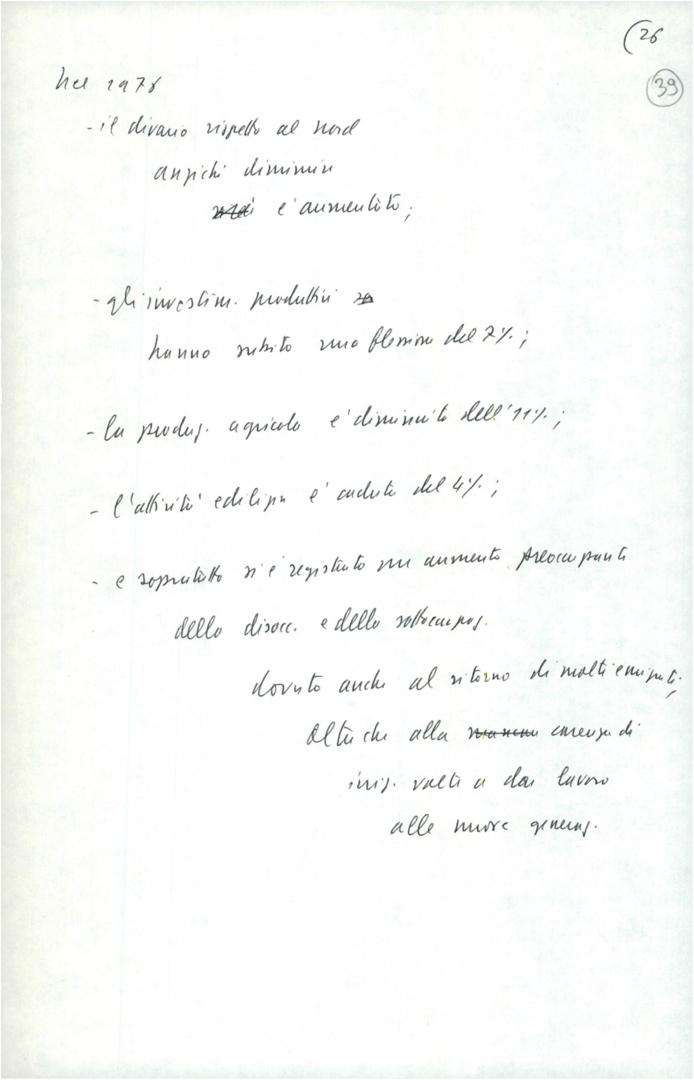 (26
39
Nel 1976
- il divario rispetto al nord
anziché diminuire
è aumentato;
- gli investim. produttivi
hanno subito una flessione del 7%;
- la produz. agricola è diminuita dell'11%;
- l'attività edilizia è caduta del 4%;
- e soprattutto si è registrato un aumento preoccupante
della disocc. e della sottoccupaz.
dovuto anche al ritorno di molti emigrati;
oltre che alla carenza di
iniz. volte a dar lavoro
alle nuove generaz.